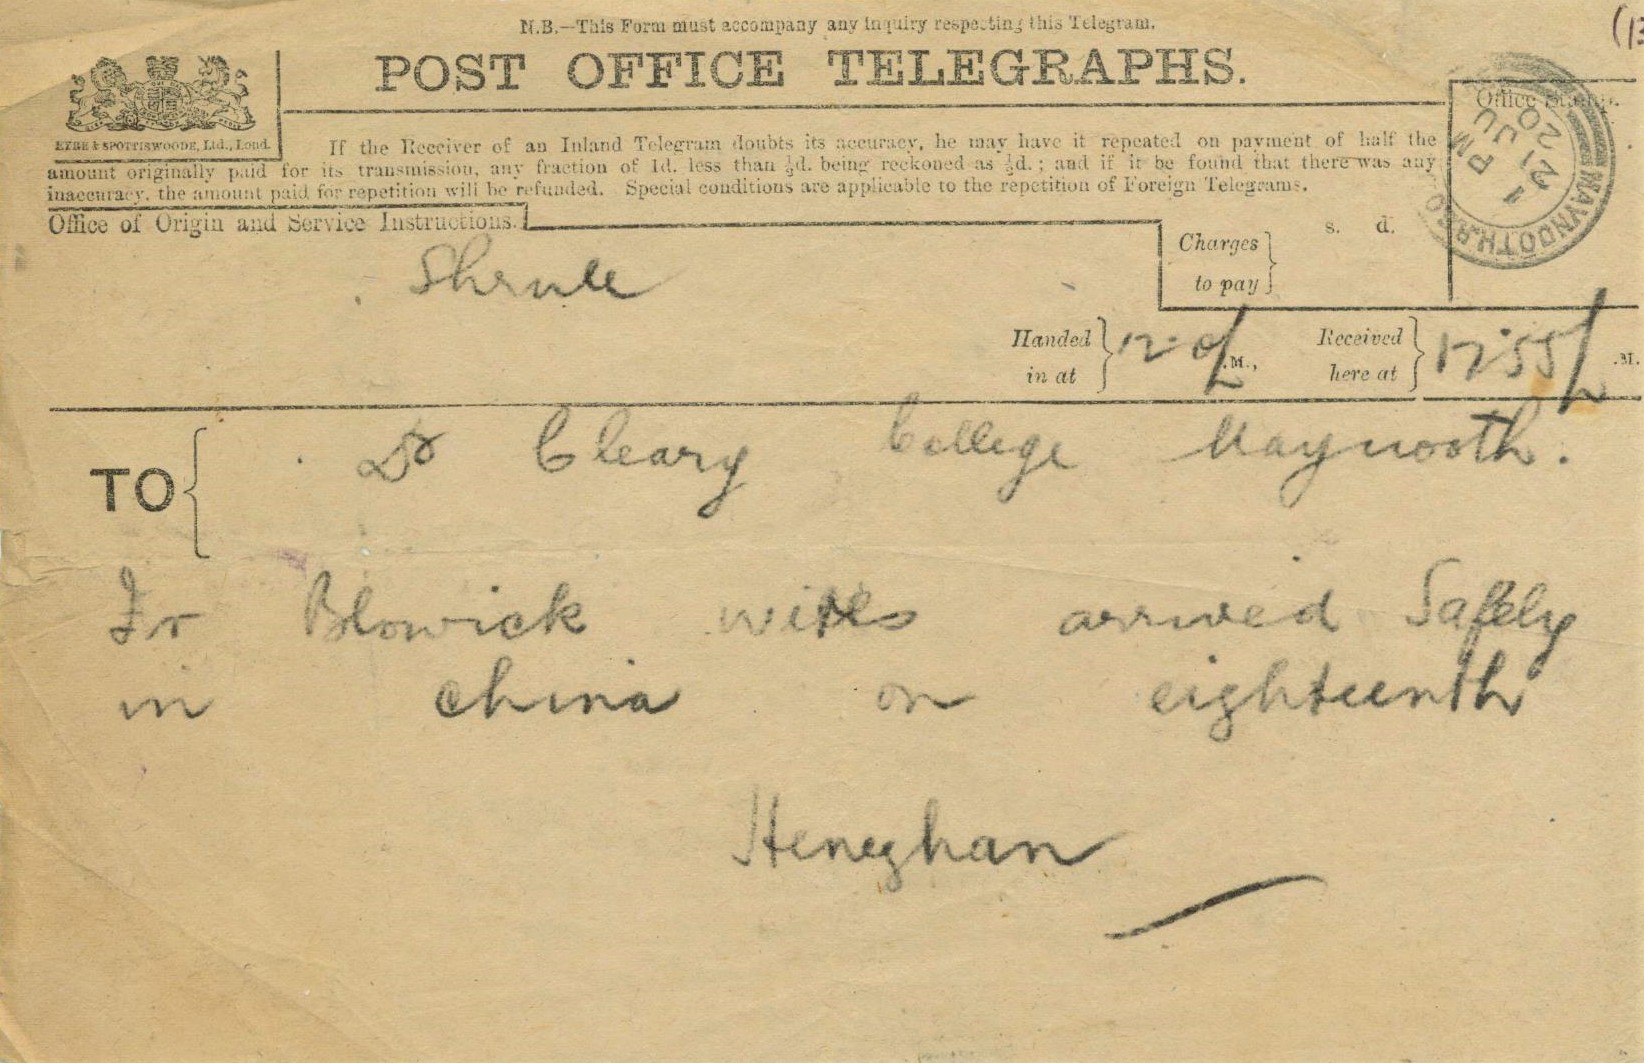 N.B.—This Form must accompany any inquiry respecting this Telegram.
(13
POST OFFICE TELEGRAPHS.
EYRE & SPOTTISWOODE, Ltd., Lond.
If the Receiver of an Inland Telegram doubts its accuracy, he may have it repeated on payment of half the
amount originally paid for its transmission, any fraction of 1d. less than ½d. being reckoned as ½d.; and if it be found that there was any
inaccuracy, the amount paid for repetition will be refunded. Special conditions are applicable to the repetition of Foreign Telegrams.
Office Stamp.
MAYNOOTH
1 PM
21 JU
20
Office of Origin and Service Instructions.
Shrule
Charges to pay
s. d.
Handed in at 12.0 .M.,
Received here at 12.55 .M.
TO
Dr Cleary College Maynooth.
Fr Blowick wires arrived Safely
in china on eighteenth
Heneghan